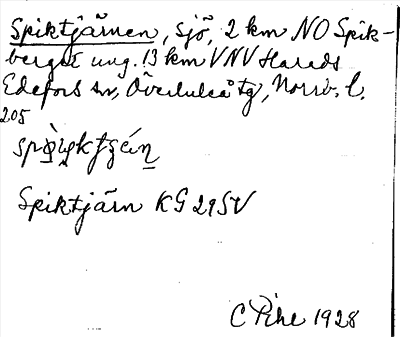 Spiktjärnen, sjö, 2 km NO Spik-
berget ung. 13 km VNV Harads
Edefors sn, Överluleå tg, Norrb. l.
205
Spiktjärn KG 29SV
C Pihl 1928